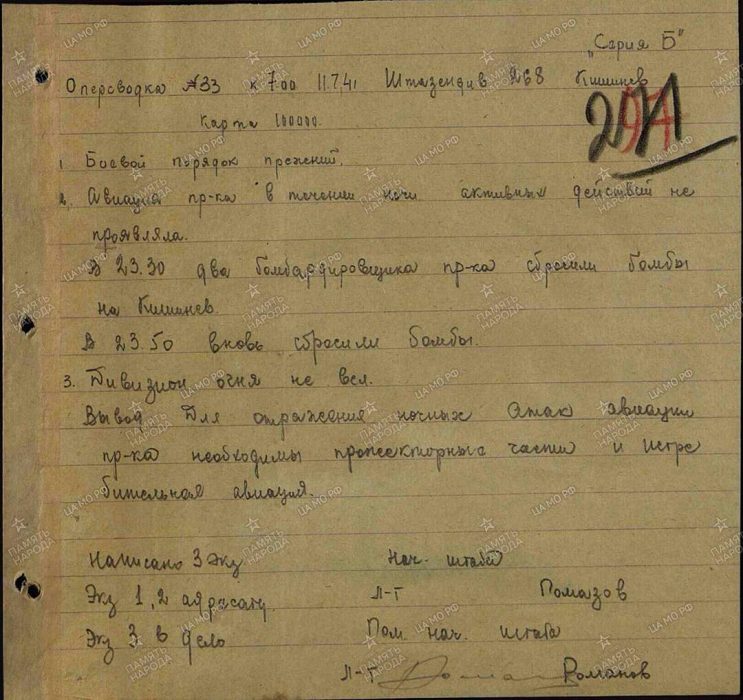 "Серия Б"
Оперсводка №33 к 7.00 11.7.41 Штазендив 268 Кишинев
Карта 100000.
1. Боевой порядок прежний.
2. Авиация пр-ка в течении ночи активных действий не
проявляла.
В 23.30 два бомбардировщика пр-ка сбросили бомбы
на Кишинев.
В 23.50 вновь сбросили бомбы.
3. Дивизион огня не вел.
Вывод Для отражения ночных атак авиации
пр-ка необходимы прожекторные части и истре
бительная авиация.
Написано 3 экз Нач. штаба
Экз 1,2 адресату Л-т Помазов
Экз 3 в дело Пом. нач. штаба
Л-т Романов